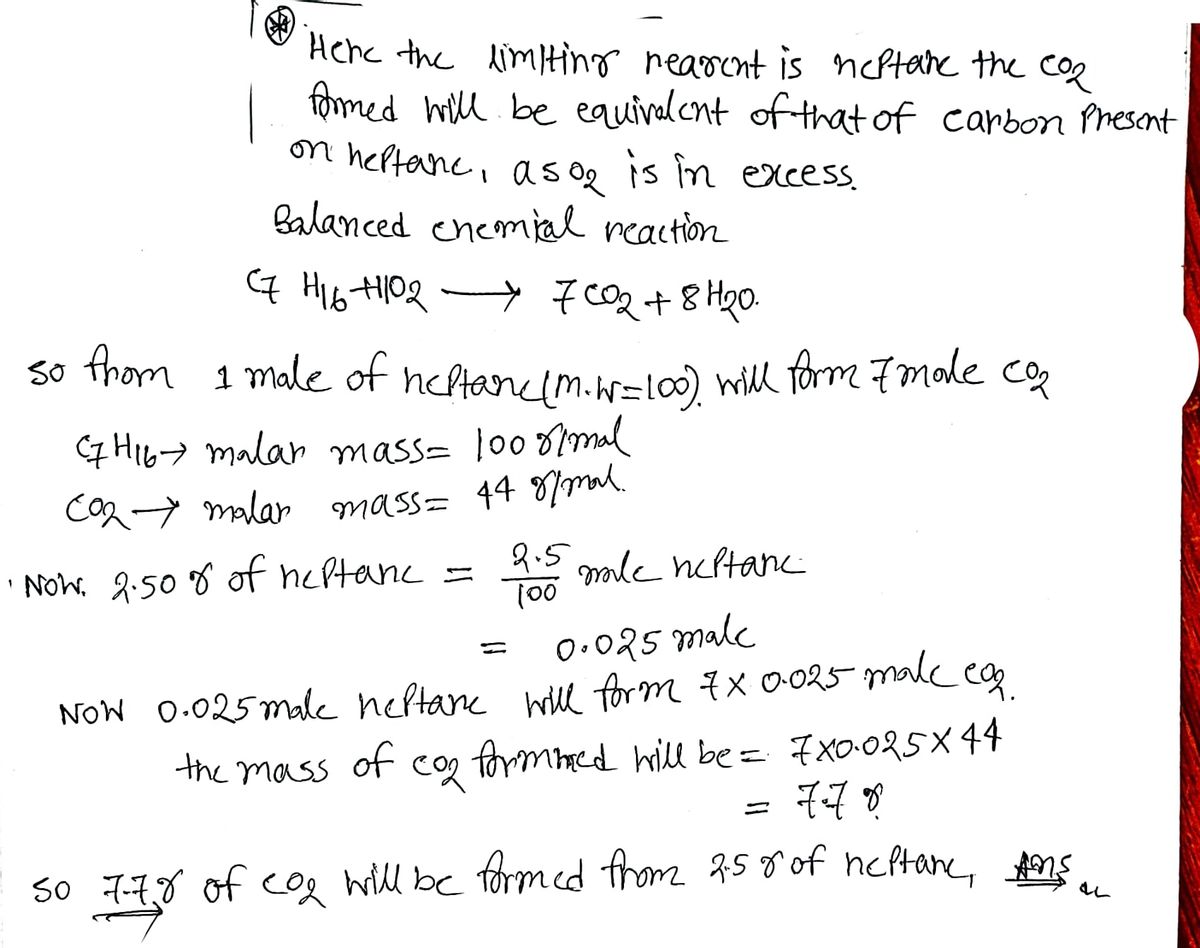 Here the limiting reagent is heptane the CO2
formed will be equivalent of that of carbon Present
on heptane, as O2 is in excess.
Balanced chemical reaction
C7 H16 + 11O2 → 7CO2 + 8H2O.
so from 1 mole of heptane (M.W=100). will form 7 mole CO2
C7H16 → molar mass= 100 g/mol
CO2 → molar mass= 44 g/mol.
Now. 2.50 g of heptane = 2.5/100 mole heptane
= 0.025 mole
NOW 0.025 mole heptane will form 7 X 0.025 mole CO2.
the mass of CO2 formmed will be = 7X0.025X44
= 7.7 g
so 7.7 g of CO2 will be formed from 2.5 g of heptane, Ans